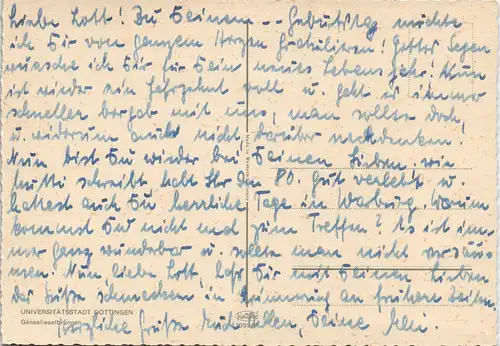 Liebe Lott! Zu Deinem -- Geburtstag möchte
ich Dir von ganzem Herzen gratulieren! Gottes Segen
wünsche ich Dir für Dein neues Lebensjahr! Nun
ist wieder ein Jahrzehnt voll u. geht es immer
schneller bergab mit uns, man sollte doch,
u. wiederum auch nicht, darüber nachdenken.
Nun bist Du wieder bei Deinen Lieben. wie
Mutti schreibt habt Ihr den 80. gut verlebt u.
hattest auch Du herrliche Tage in Warburg. Warum
kommst Du nicht mal zum Treffen? Es ist im-
mer ganz wunderbar u. sollte man nicht versäu-
men. Nun liebe Lott, laß Dir mit Deinen Lieben
das Süße schmecken in Erinnerung an frühere Zeiten.
UNIVERSITÄTSSTADT GÖTTINGEN
Gänselieselbrunnen
Herzliche Grüße Euch allen, Deine